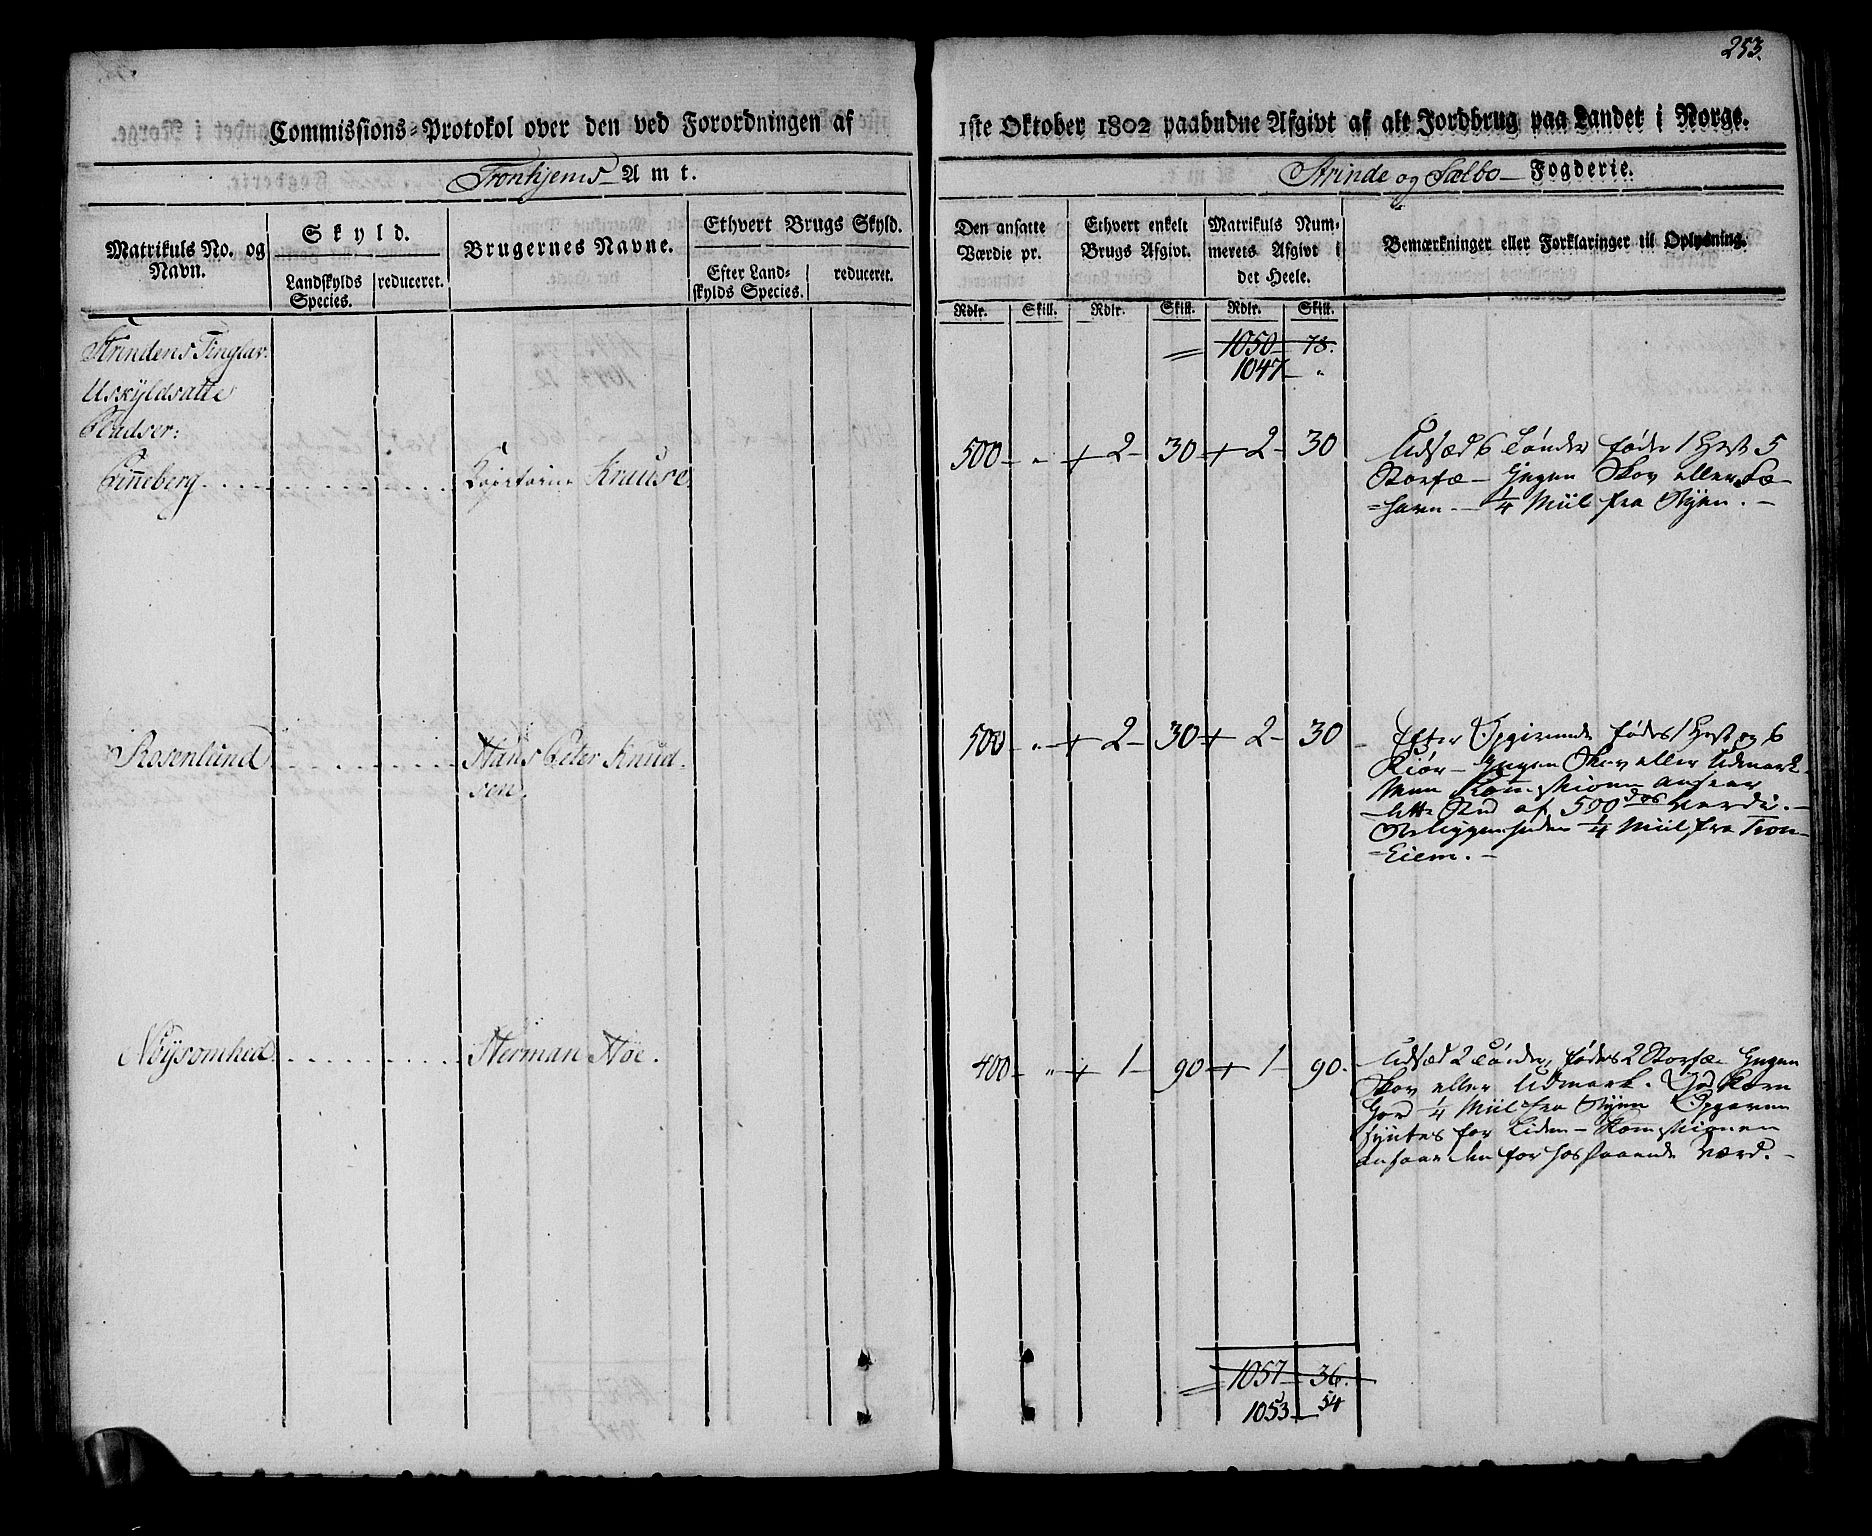 253.
Commissions-Protokol over den ved Forordningen af 1ste Oktober 1802 paabudne Afgivt af alt Jordbrug paa Landet i Norge.
Tronhjems Amt. Strinde og Sælbo Fogderie.
Matrikuls No. og Navn.
Skyld.
Landskylds Species.
reduceret.
Brugernes Navne.
Ethvert Brugs Skyld.
Efter Landskylds Species.
reduceret.
Den ansatte Værdie pr.
Ethvert enkelt Brugs Afgivt.
Matrikuls Nummerets Afgivt i det Heele.
Bemærkninger eller Forklaringer til Oplysning.
Rdlr. Skill. Rdlr. Skill. Rdlr. Skill.
Strindens Tinglav. 1050 78.
Uskyldsatte 1047 "
Pladser:
Pineberg 500 " + 2 30 + 2 30
Krause
Udsæd 6 Tönder föder 1 Hest 5
Storfæ - Ingen Skov eller Fæ-
=havn - 1/4 Miil fra Byen. -
Rosenlund Hans Peter Knud- 500 " + 2 30 + 2 30
sen.
Efter Opgivende födes 1 Hest og 6
Kiör - Ingen Skov eller Udmark
Men Kommissionen ansaar
dette Sted af 500 rdrs Værdi. -
Beliggenheden 1/4 Miil fra Tron-
=hiem. -
Nöysomhed Herman Hoe. 400 " + 1 90 + 1 90.
Udsæd 2 Tönder, födes 2 Storfæ Ingen
Skov eller Udmark. God Korn
Jord 1/4 Miil fra Byen Opgaven
syntes for liden - Kommissionen
ansaar den for hosstaaende Værd. -
1057 36.
1053 54